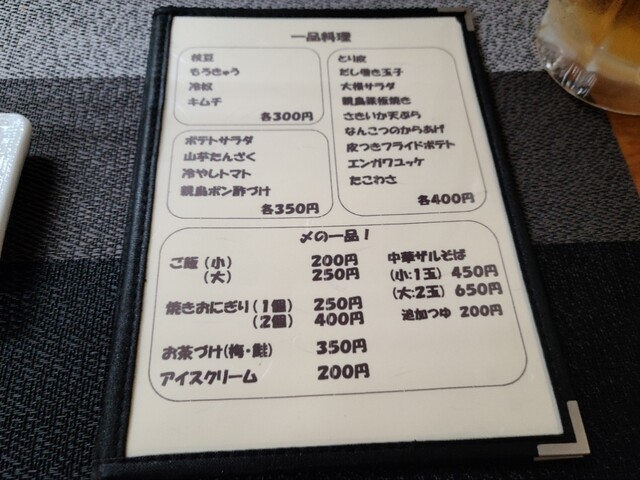 一品料理
枝豆
もろきゅう
冷奴
キムチ
各300円
ポテトサラダ
山芋たんざく
冷やしトマト
親鳥ポン酢づけ
各350円
とり皮
だし巻き玉子
大根サラダ
親鳥鉄板焼き
さきいか天ぷら
なんこつのからあげ
皮つきフライドポテト
エンガワユッケ
たこわさ
各400円
〆の一品!
ご飯(小) 200円
(大) 250円
焼きおにぎり(1個) 250円
(2個) 400円
お茶づけ(梅・鮭) 350円
アイスクリーム 200円
中華ザルそば
(小:1玉) 450円
(大:2玉) 650円
追加つゆ 200円